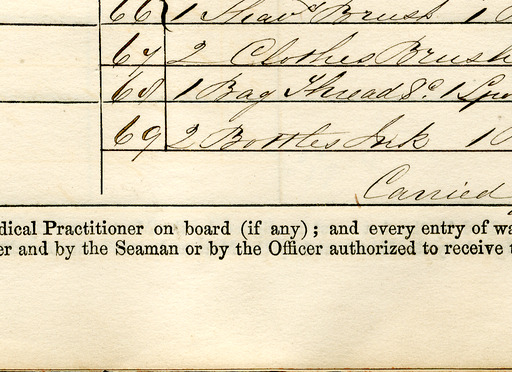 66 1 Shavg Brush 1
67 2 Clothes Brush
68 1 Bag Thread &c. 1
69 2 Bottles Ink 10
Carried
dical Practitioner on board (if any); and every entry of wa
er and by the Seaman or by the Officer authorized to receive t